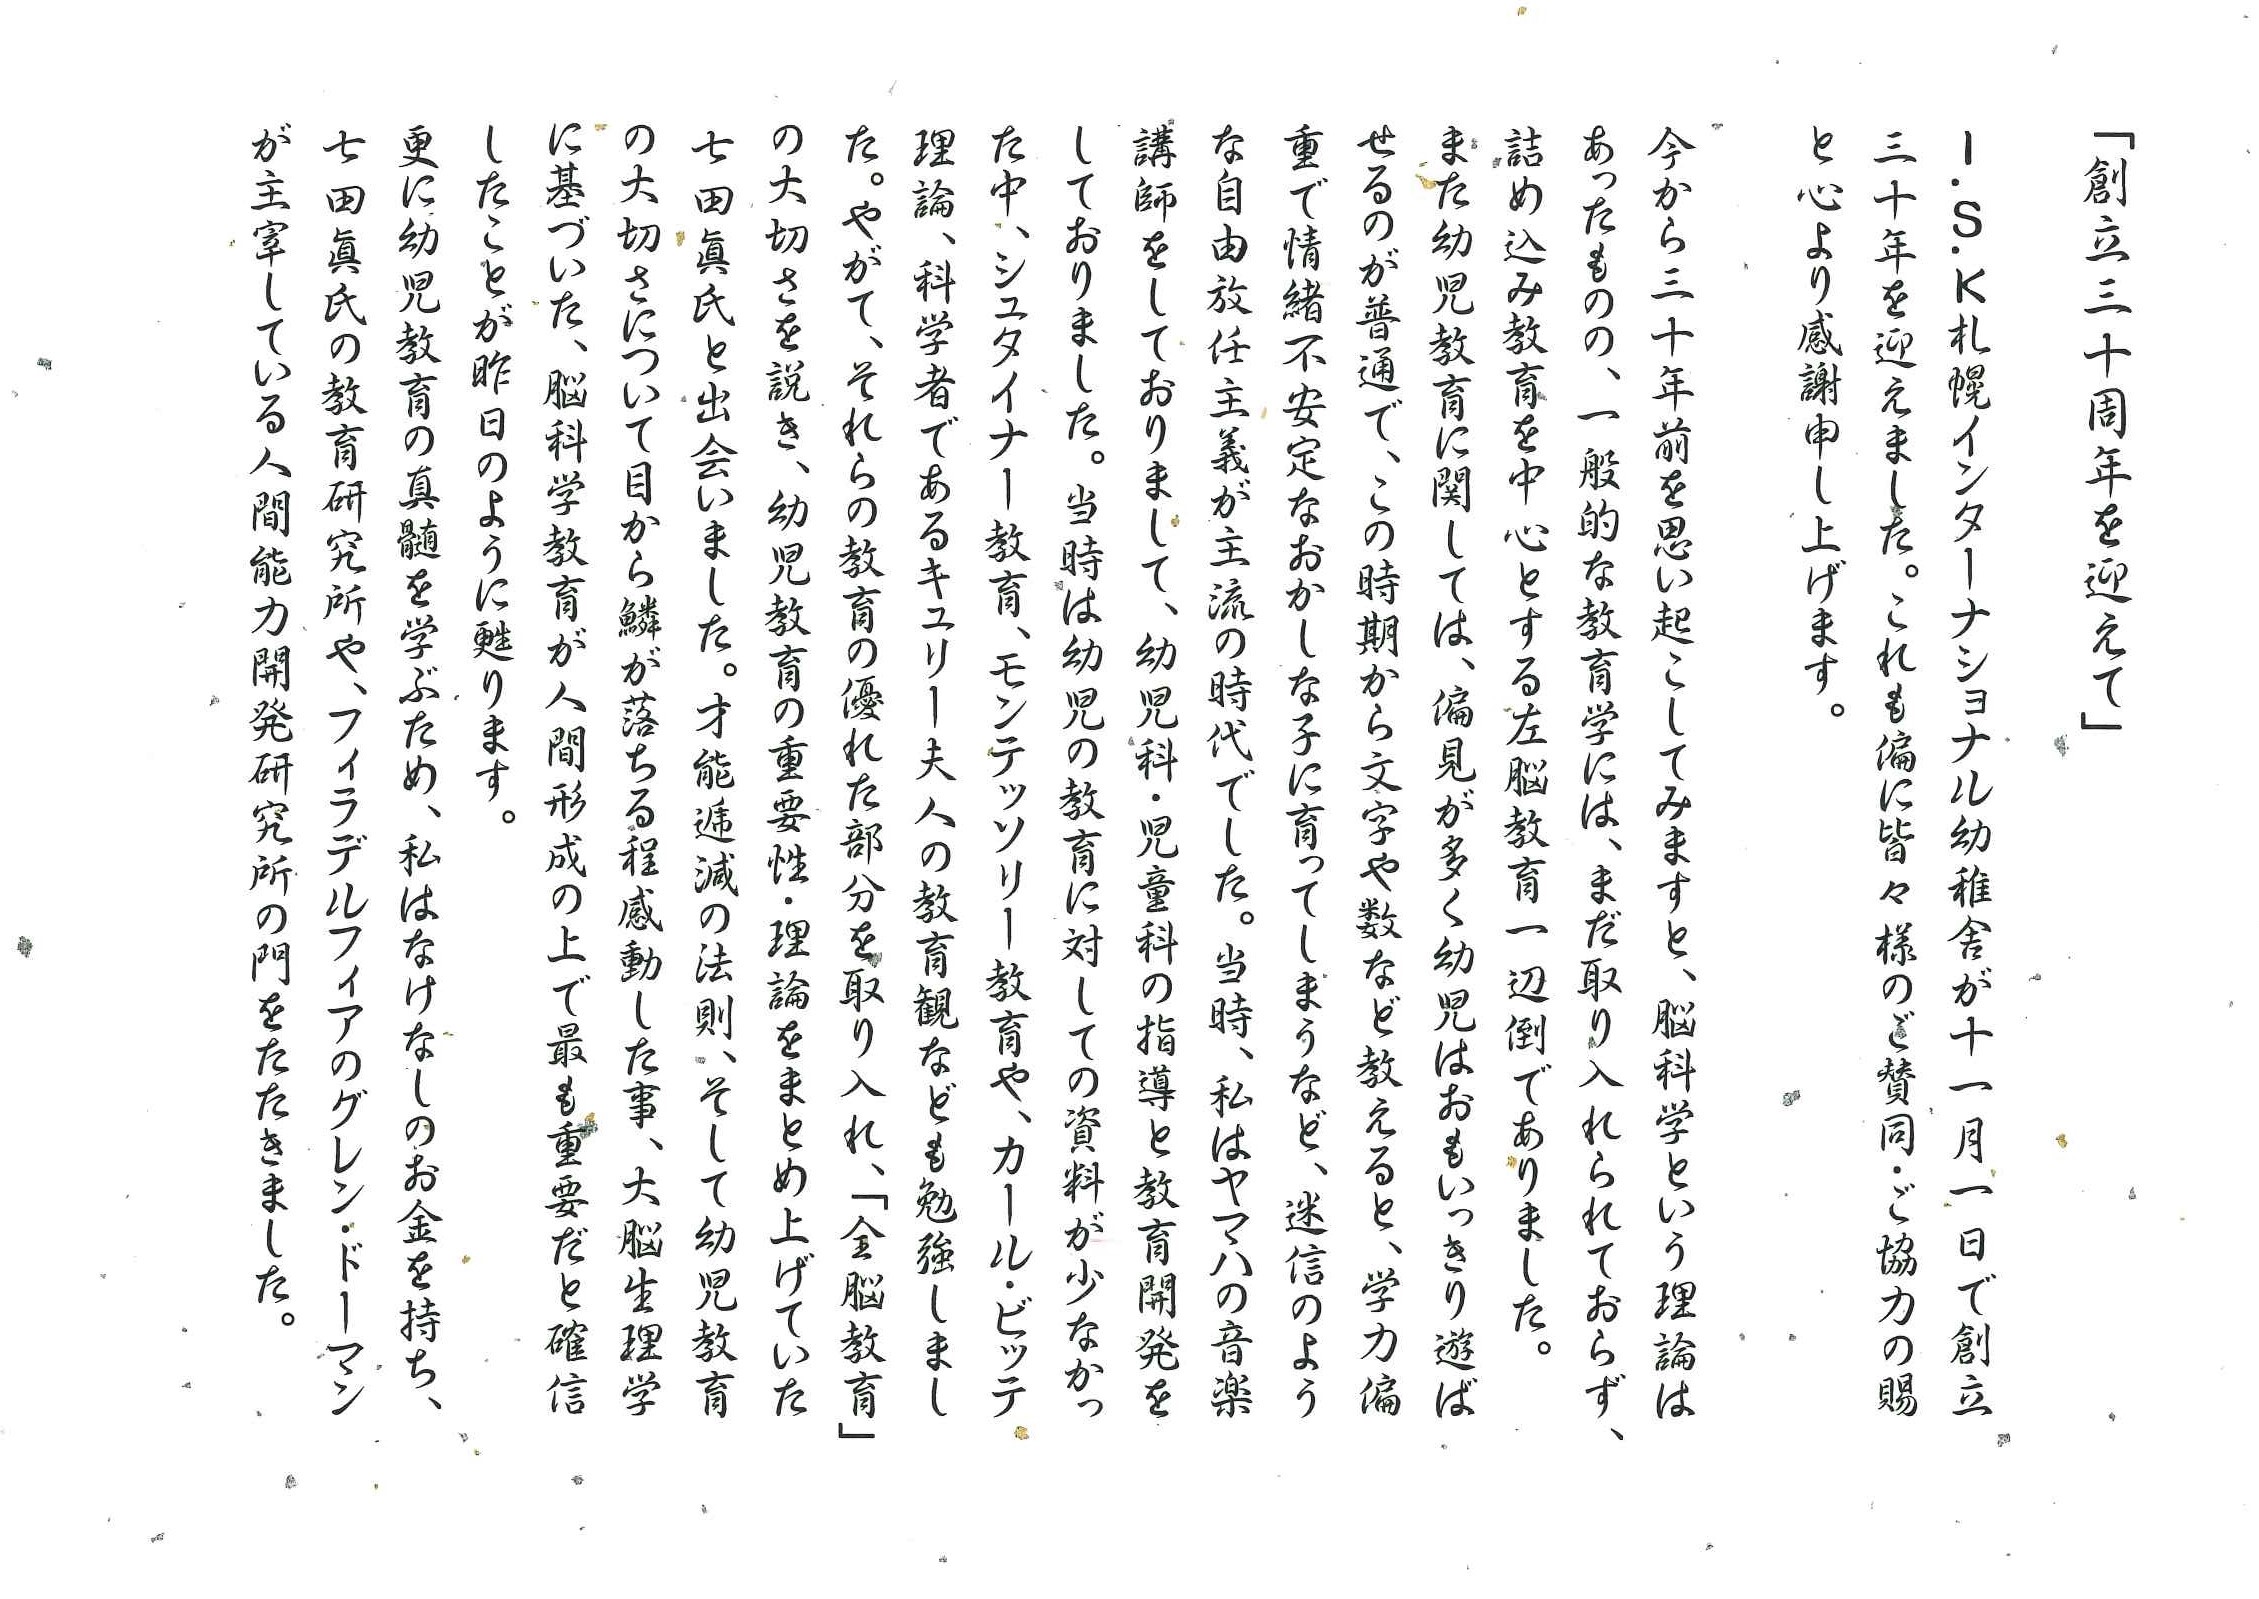 「創立三十周年を迎えて」
I.S.K札幌インターナショナル幼稚舎が十一月一日で創立
三十年を迎えました。これも偏に皆々様のご賛同・ご協力の賜
と心より感謝申し上げます。
今から三十年前を思い起こしてみますと、脳科学という理論は
あったものの、一般的な教育学には、まだ取り入れられておらず、
詰め込み教育を中心とする左脳教育一辺倒でありました。
また幼児教育に関しては、偏見が多く幼児はおもいっきり遊ば
せるのが普通で、この時期から文字や数など教えると、学力偏
重で情緒不安定なおかしな子に育ってしまうなど、迷信のよう
な自由放任主義が主流の時代でした。当時、私はヤマハの音楽
講師をしておりまして、幼児科・児童科の指導と教育開発を
しておりました。当時は幼児の教育に対しての資料が少なかっ
た中、シュタイナー教育、モンテッソリー教育や、カール・ビッテ
理論、科学者であるキュリー夫人の教育観なども勉強しまし
た。やがて、それらの教育の優れた部分を取り入れ、「全脳教育」
の大切さを説き、幼児教育の重要性・理論をまとめ上げていた
七田眞氏と出会いました。才能逓減の法則、そして幼児教育
の大切さについて目から鱗が落ちる程感動した事、大脳生理学
に基づいた、脳科学教育が人間形成の上で最も重要だと確信
したことが昨日のように甦ります。
更に幼児教育の真髄を学ぶため、私はなけなしのお金を持ち、
七田眞氏の教育研究所や、フィラデルフィアのグレン・ドーマン
が主宰している人間能力開発研究所の門をたたきました。